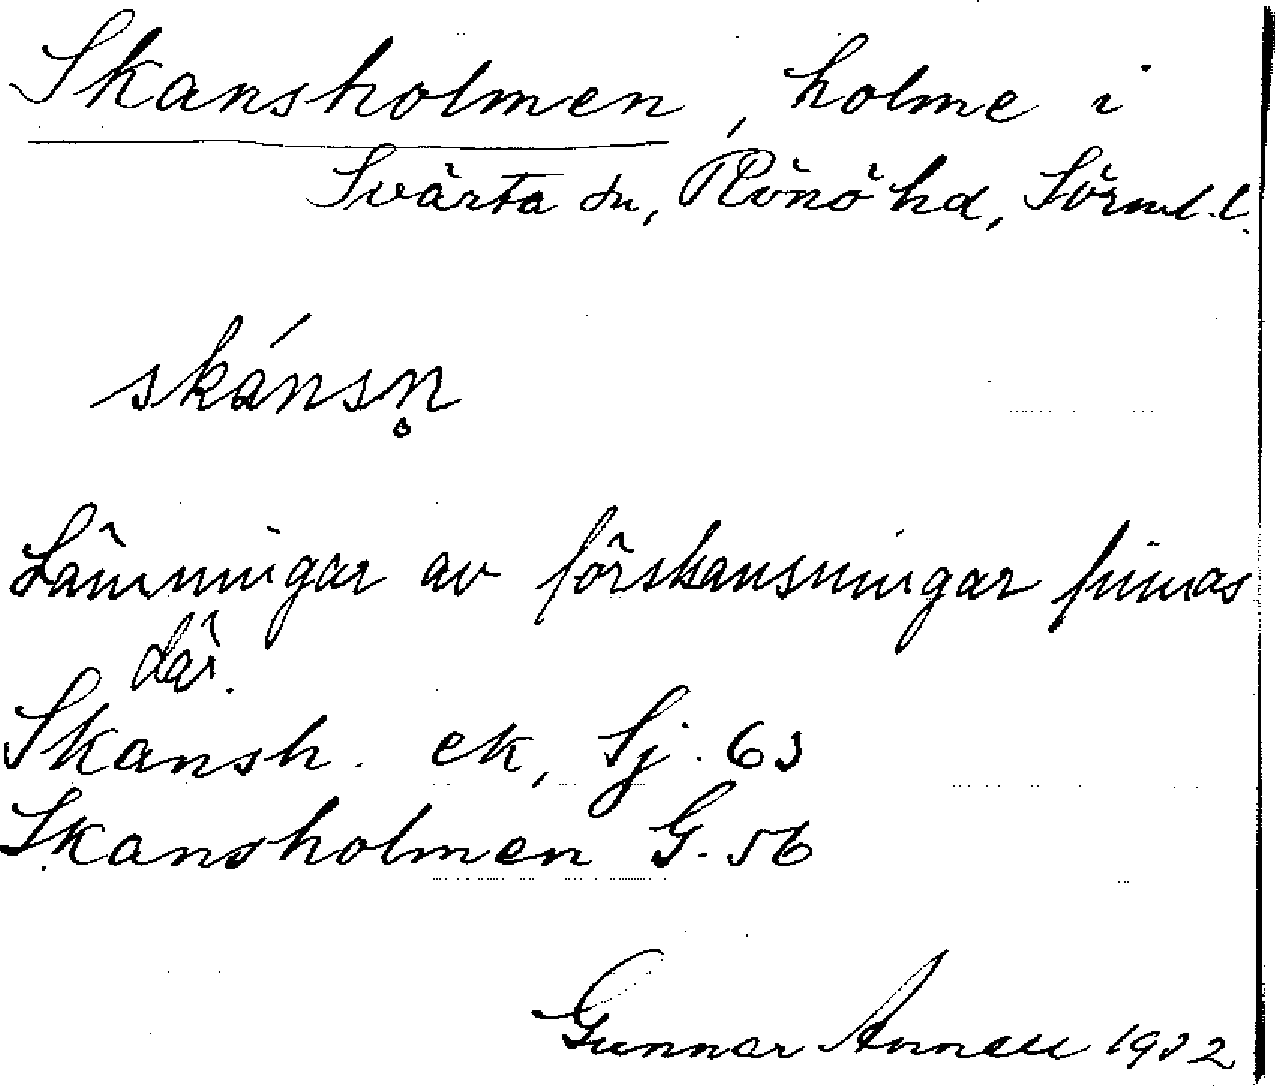 Skansholmen, holme i
Svärta sn, Rönö hd, Sörml. l.
skánsn̥
Lämningar av förskansningar finnas
där.
Skansh. ek, Sj. 63
Skansholmen G. 56
Gunnar Annell 1932